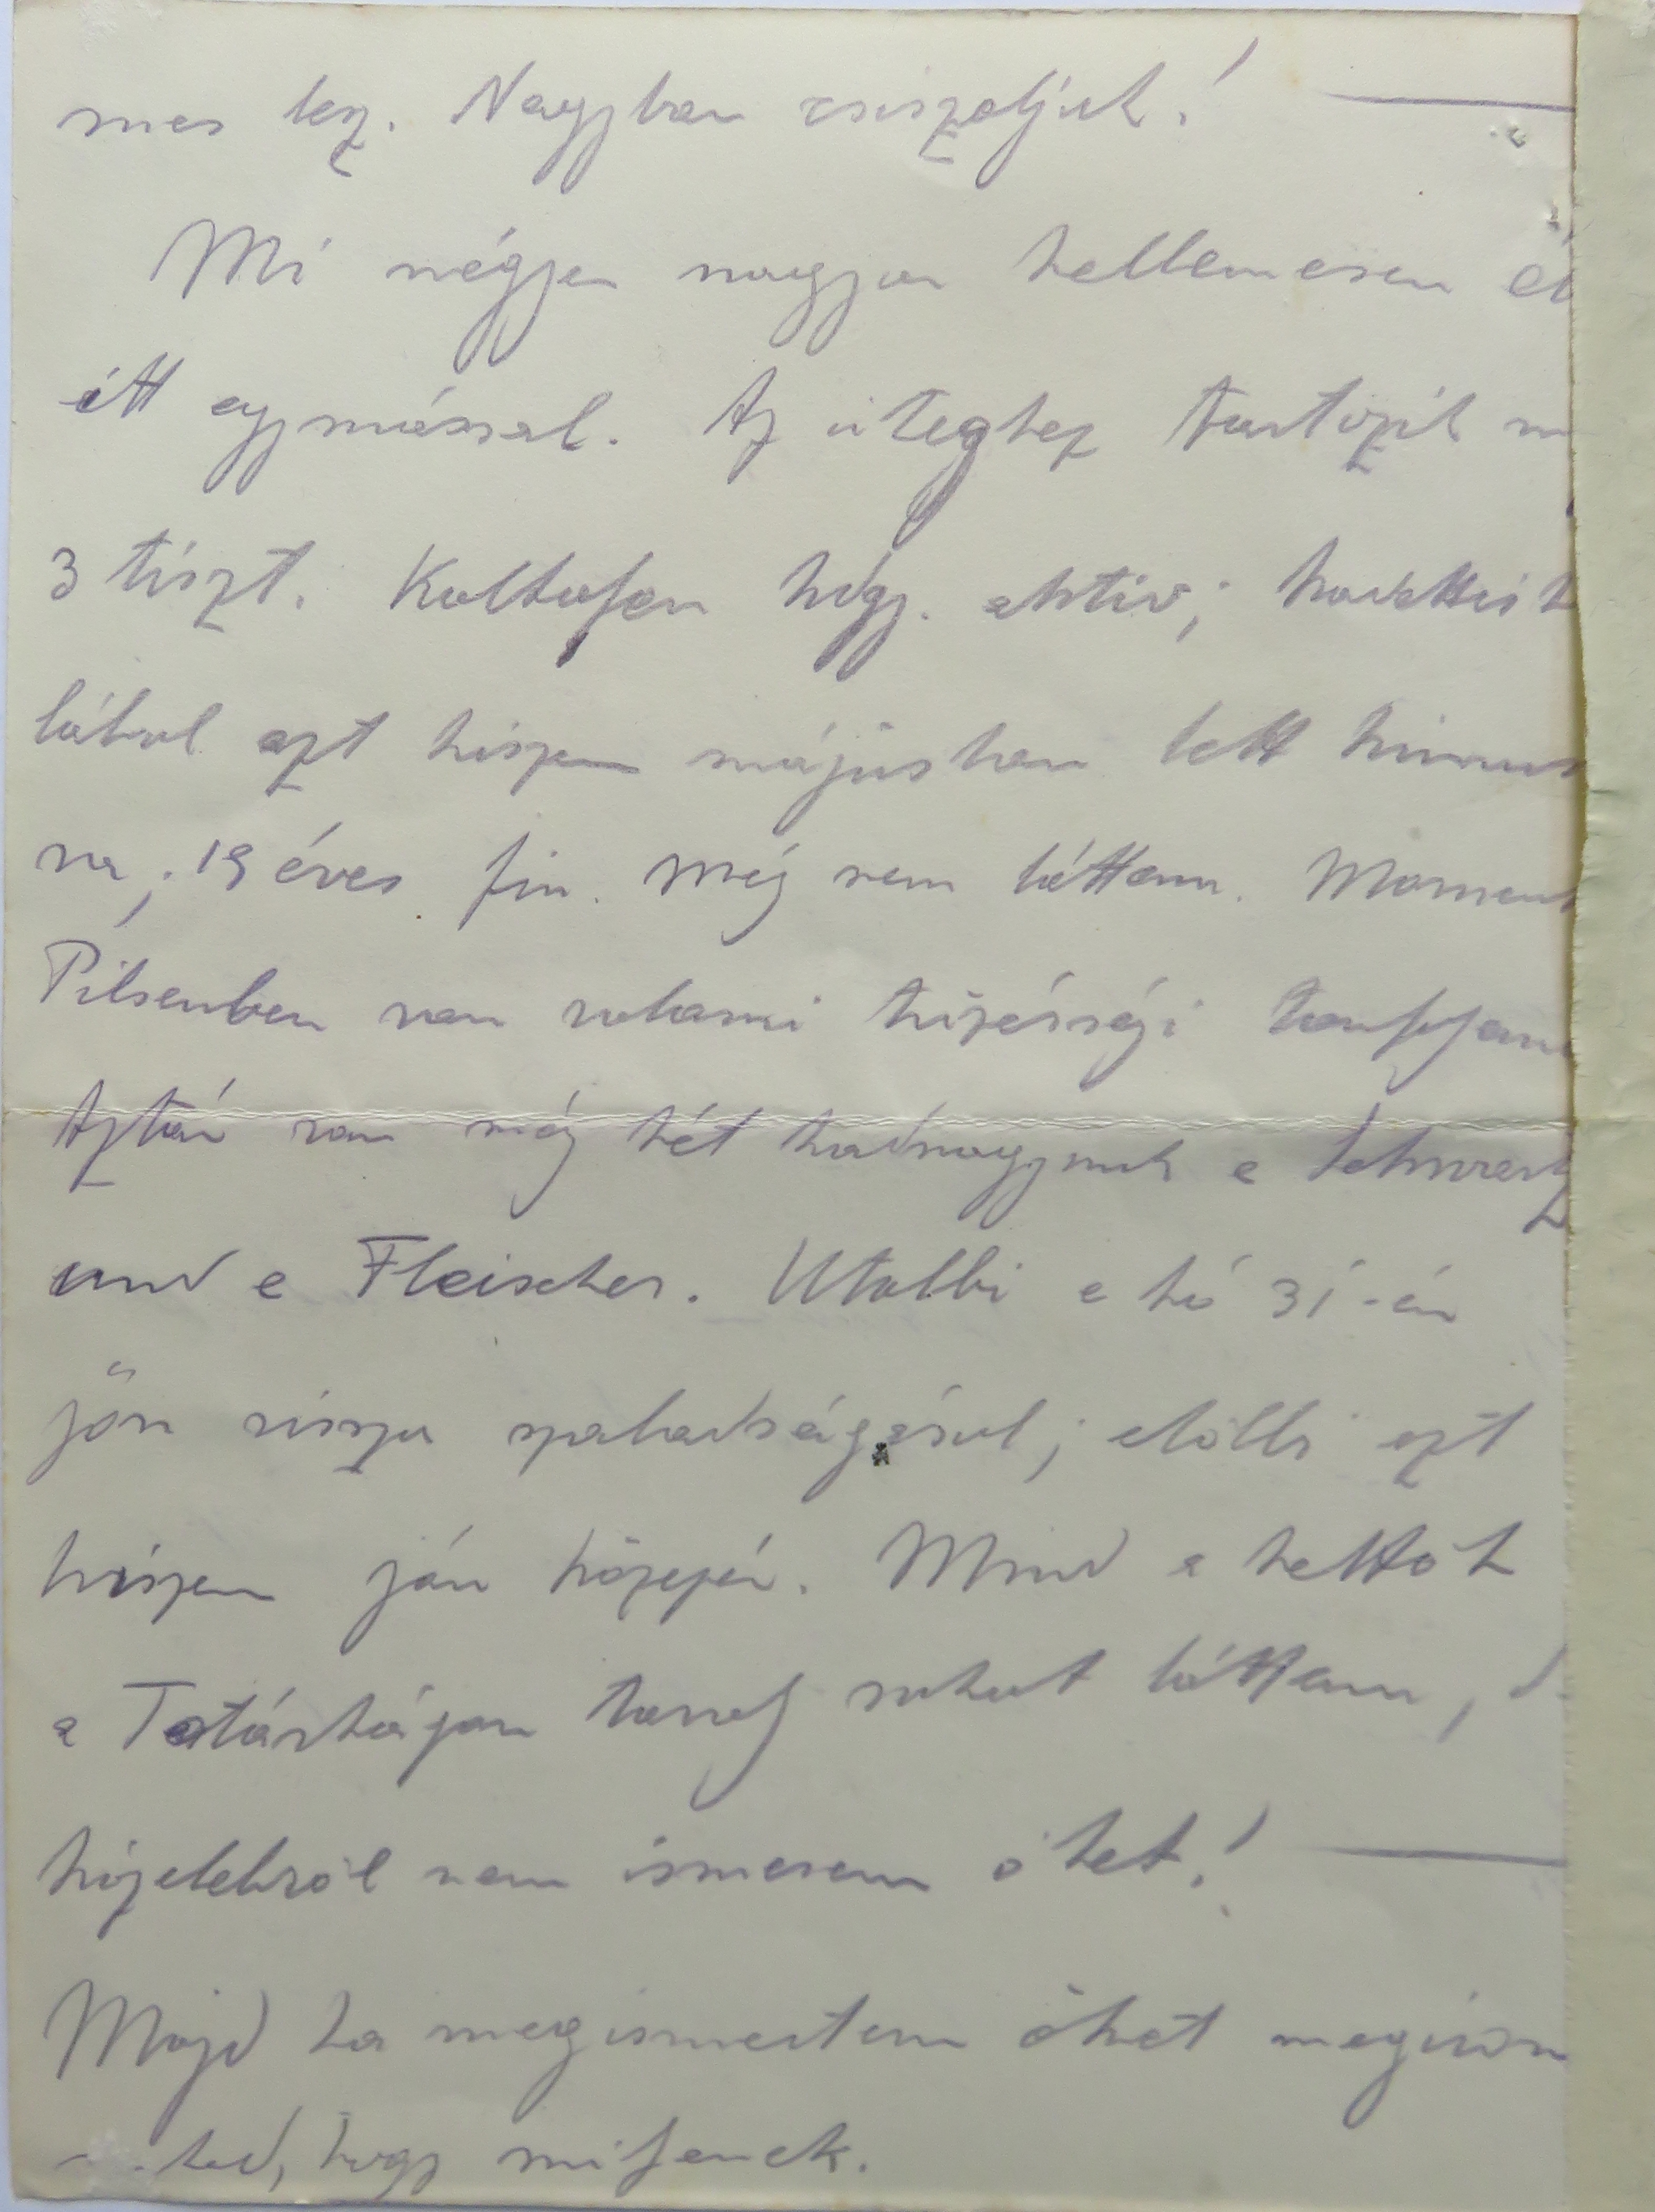 mes lesz. Nagyban csiszoljuk!
Mi négyen nagyon kellemesen él
itt egymással. Az üteghez tartozik m
3 tiszt. Kaltofen hdgy. aktív; kadettisk
lából azt hiszem májusban lett kimust
va; 19 éves fiu. Még nem láttam. Moment
Pilsenben van valami tüzérségi tanfolyam
Aztán van még két hadnagyunk a Schwarz
und a Fleischer. Utóbbi e hó 31-én
jön vissza szabadságáról; előbbi azt
hiszem ján közepén. Mind a kettőt
a Tatárhágón tavaly sokat láttam, d
közelebről nem ismerem őket!
Majd ha megismertem őket megirom
hogy milyenek.